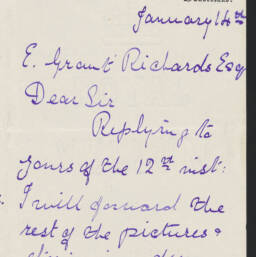 January 14th
E. Grant Richards Esq
Dear Sir
Replying to
yours of the 12th inst:
I will forward the
rest of the pictures &